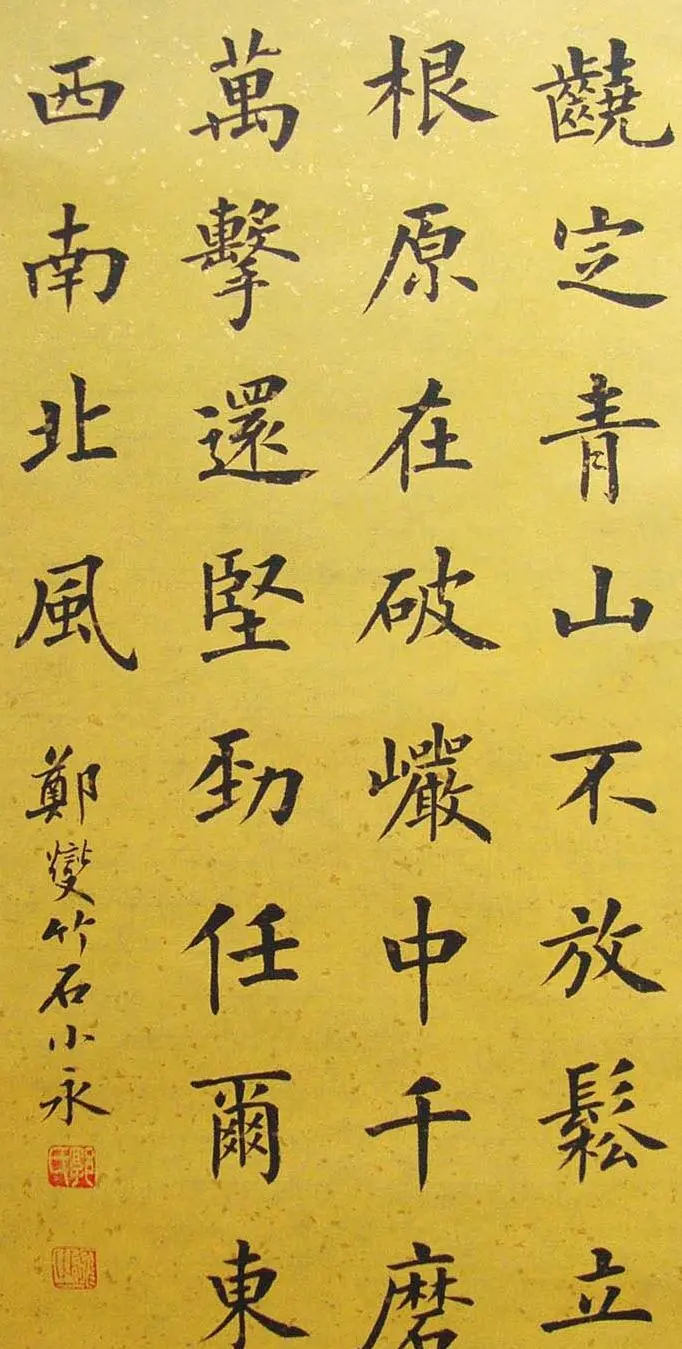 䶧定青山不放鬆立
根原在破巗中千磨
萬擊還堅勁任爾東
西南北風
鄭燮竹石小永